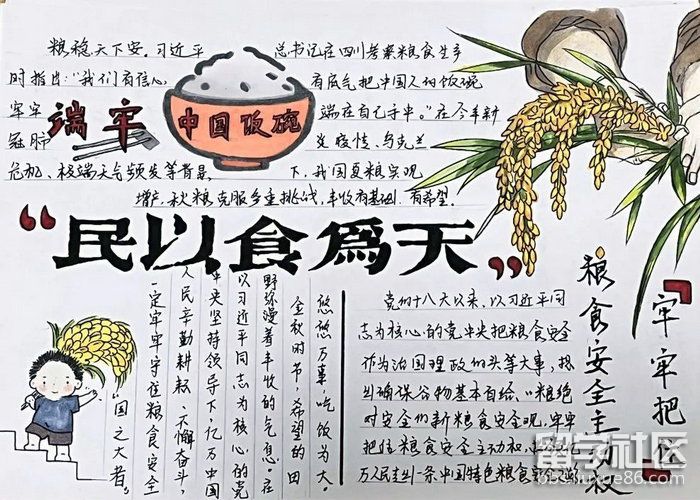 粮稳天下安。习近平 总书记在四川考察粮食生产
时指出:“我们有信心, 有底气把中国人的饭碗
牢牢 端在自己手中。”在今年新
冠肺 炎疫情、乌克兰
危机、极端天气频发等背景 下,我国夏粮实现
增产,秋粮克服多重挑战,丰收有基础,有希望。
端牢
中国饭碗
“民以食為天”
悠悠万事,吃饭为大。
金秋时节,希望的田
野弥漫着丰收的气息。在
以习近平同志为核心的党
中央坚持领导下,亿万中国
人民辛勤耕耘、不懈奋斗,
一定牢牢守住粮食安全
“国之大者”
党的十八大以来,以习近平同
志为核心的党中央把粮食安全
作为治国理政的头等大事,
确保谷物基本自给、
对安全的新粮食安全观,牢牢
把住粮食安全主动
万人民走 一条中国特色粮食安全
“牢牢把住
粮食安全主动权
留学社区
bbs.liuxue86.com